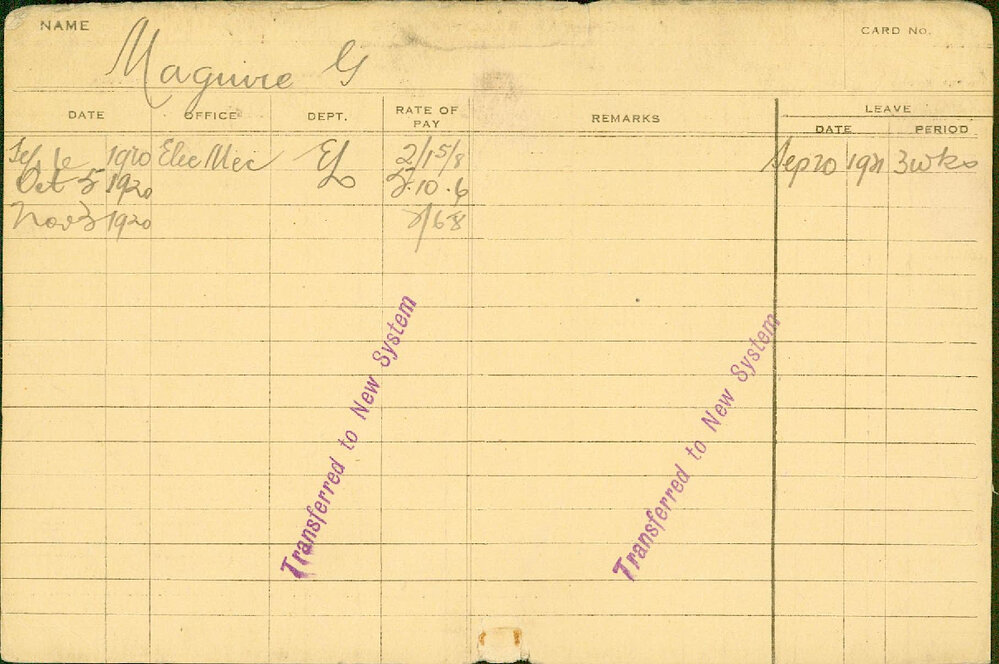 NAME
Maguire G
CARD NO.
DATE OFFICE DEPT. RATE OF PAY REMARKS LEAVE
DATE PERIOD
1920 Elec Mec EL 2/15/8 Sep 20 1921 3 wks
Oct 5 1920 10.6
Nov 3 1920
Transferred to New System
Transferred to New System